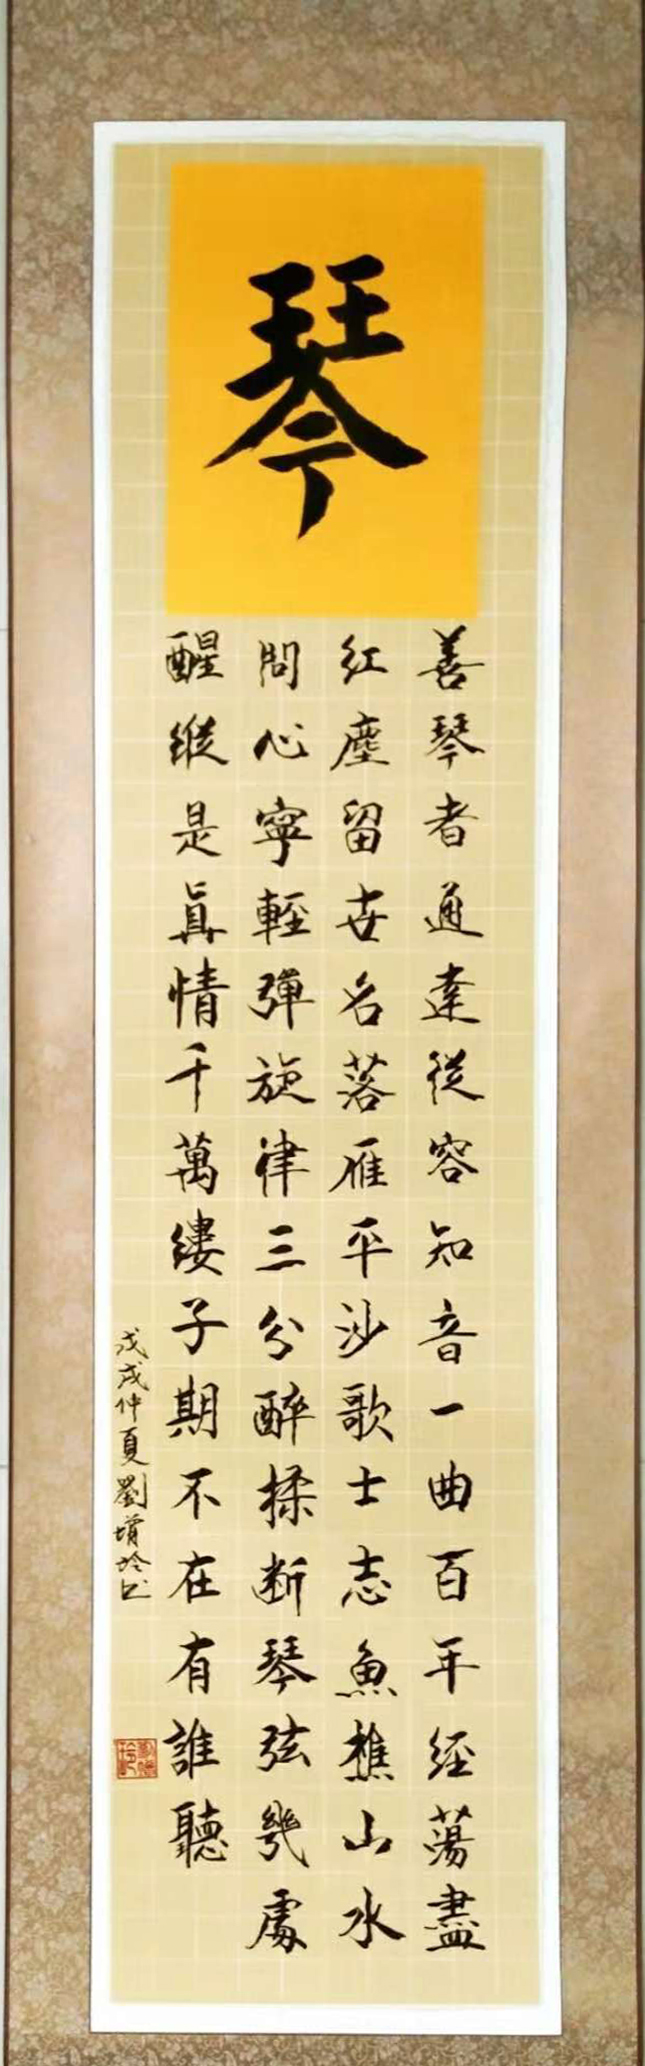 琴
善琴者通達從容知音一曲百年經蕩盡
紅塵留世名落雁平沙歌士志魚樵山水
問心寧輕彈旋律三分醉揉断琴弦幾處
醒縱是真情千萬縷子期不在有誰聽
戊戌仲夏劉增玲书